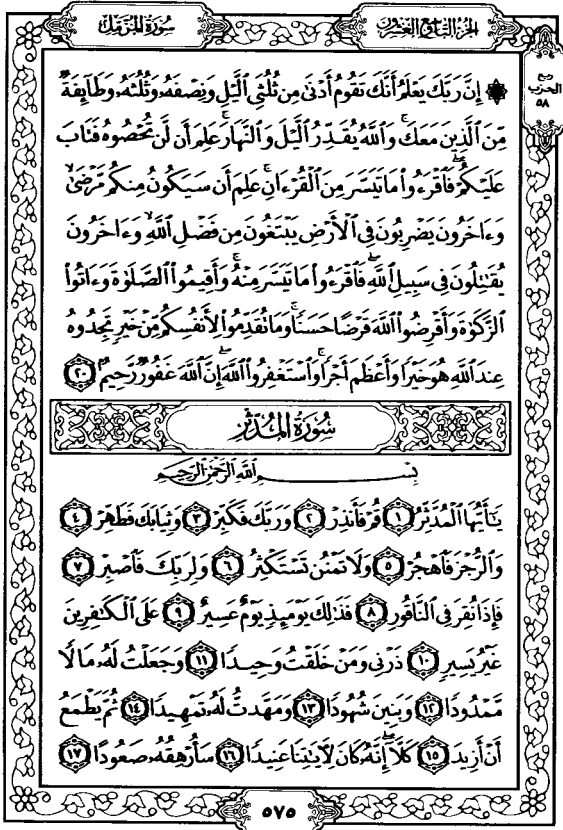 سُورَةُ المُزَّمِّل
الجُزْءُ التَّاسِعُ وَالعِشْرُونَ
ربع
الحزب
٥٨
۞ إِنَّ رَبَّكَ يَعْلَمُ أَنَّكَ تَقُومُ أَدْنَىٰ مِن ثُلُثَيِ ٱلَّيْلِ وَنِصْفَهُۥ وَثُلُثَهُۥ وَطَآئِفَةٌ
مِّنَ ٱلَّذِينَ مَعَكَۚ وَٱللَّهُ يُقَدِّرُ ٱلَّيْلَ وَٱلنَّهَارَۚ عَلِمَ أَن لَّن تُحْصُوهُ فَتَابَ
عَلَيْكُمْۖ فَٱقْرَءُوا۟ مَا تَيَسَّرَ مِنَ ٱلْقُرْءَانِۚ عَلِمَ أَن سَيَكُونُ مِنكُم مَّرْضَىٰۙ
وَءَاخَرُونَ يَضْرِبُونَ فِى ٱلْأَرْضِ يَبْتَغُونَ مِن فَضْلِ ٱللَّهِۙ وَءَاخَرُونَ
يُقَٰتِلُونَ فِى سَبِيلِ ٱللَّهِۖ فَٱقْرَءُوا۟ مَا تَيَسَّرَ مِنْهُۚ وَأَقِيمُوا۟ ٱلصَّلَوٰةَ وَءَاتُوا۟
ٱلزَّكَوٰةَ وَأَقْرِضُوا۟ ٱللَّهَ قَرْضًا حَسَنًاۚ وَمَا تُقَدِّمُوا۟ لِأَنفُسِكُم مِّنْ خَيْرٍ تَجِدُوهُ
عِندَ ٱللَّهِ هُوَ خَيْرًا وَأَعْظَمَ أَجْرًاۚ وَٱسْتَغْفِرُوا۟ ٱللَّهَۖ إِنَّ ٱللَّهَ غَفُورٌ رَّحِيمٌۢ ٢٠
سُورَةُ المُدَّثِّر
بِسْمِ ٱللَّهِ ٱلرَّحْمَٰنِ ٱلرَّحِيمِ
يَٰٓأَيُّهَا ٱلْمُدَّثِّرُ ١ قُمْ فَأَنذِرْ ٢ وَرَبَّكَ فَكَبِّرْ ٣ وَثِيَابَكَ فَطَهِّرْ ٤
وَٱلرُّجْزَ فَٱهْجُرْ ٥ وَلَا تَمْنُن تَسْتَكْثِرُ ٦ وَلِرَبِّكَ فَٱصْبِرْ ٧
فَإِذَا نُقِرَ فِى ٱلنَّاقُورِ ٨ فَذَٰلِكَ يَوْمَئِذٍ يَوْمٌ عَسِيرٌ ٩ عَلَى ٱلْكَٰفِرِينَ
غَيْرُ يَسِيرٍ ١٠ ذَرْنِى وَمَنْ خَلَقْتُ وَحِيدًا ١١ وَجَعَلْتُ لَهُۥ مَالًا
مَّمْدُودًا ١٢ وَبَنِينَ شُهُودًا ١٣ وَمَهَّدتُّ لَهُۥ تَمْهِيدًا ١٤ ثُمَّ يَطْمَعُ
أَنْ أَزِيدَ ١٥ كَلَّآۖ إِنَّهُۥ كَانَ لِءَايَٰتِنَا عَنِيدًا ١٦ سَأُرْهِقُهُۥ صَعُودًا ١٧
٥٧٥